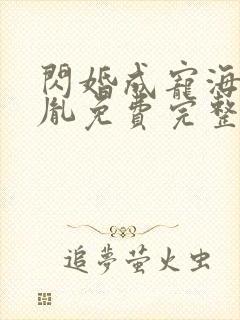 閃婚成寵海
胤免費完整
追夢螢火虫